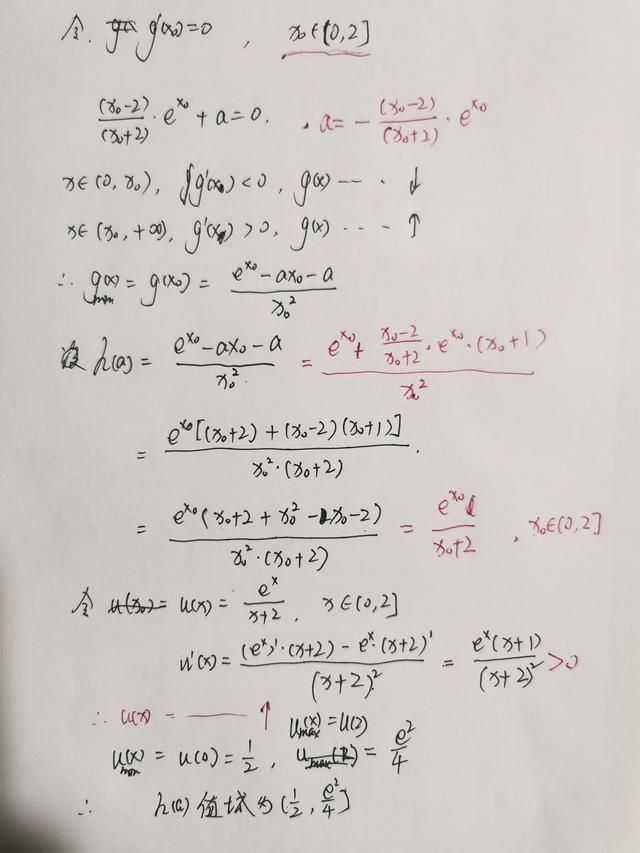 令. g'(x₀)=0 , x₀∈(0,2]
(x₀-2)/(x₀+2)·e^{x₀}+a=0. . a=-(x₀-2)/(x₀+2)·e^{x₀}
x∈(0,x₀), g'(x)<0, g(x) --- · ↓
x∈(x₀,+∞), g'(x)>0, g(x) ---- ↑
∴ g(x)min = g(x₀) = (e^{x₀}-ax₀-a)/x₀²
设 h(a) = (e^{x₀}-ax₀-a)/x₀² = (e^{x₀}+(x₀-2)/(x₀+2)·e^{x₀}·(x₀+1))/x₀²
= e^{x₀}[(x₀+2)+(x₀-2)(x₀+1)]/(x₀²·(x₀+2)).
= e^{x₀}(x₀+2+x₀²-x₀-2)/(x₀²·(x₀+2)) = e^{x₀}/(x₀+2) , x₀∈(0,2]
令 u(x) = e^x/(x+2), x∈(0,2]
u'(x) = ((e^x)'·(x+2)-e^x·(x+2)')/(x+2)² = e^x(x+1)/(x+2)² >0
∴ u(x) = —— ↑ u(x)max=u(2)
u(x)min = u(0) = 1/2, = e²/4
∴ h(a) 值域为 (1/2, e²/4]